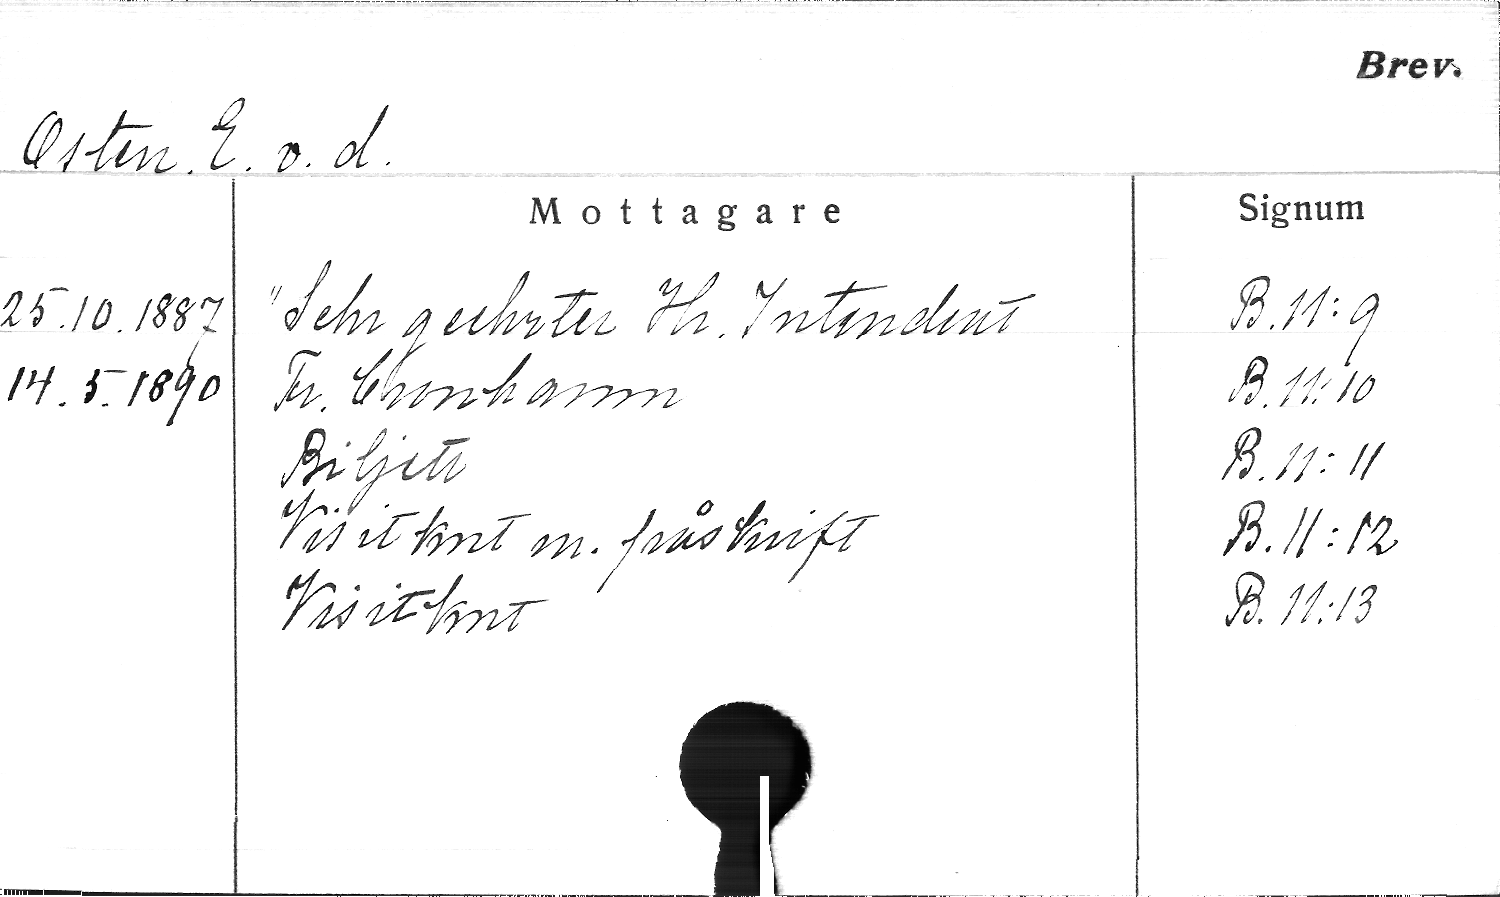 Brev.
Osten, E. v. d.
Mottagare Signum
25.10.1887 "Sehr geehrter Hr. Intendent B.11:9
14.5.1890 Fr. Cronhamn B.11:10
Biljett B.11:11
Visitkort m. påskrift B.11:12
Visitkort B.11:13